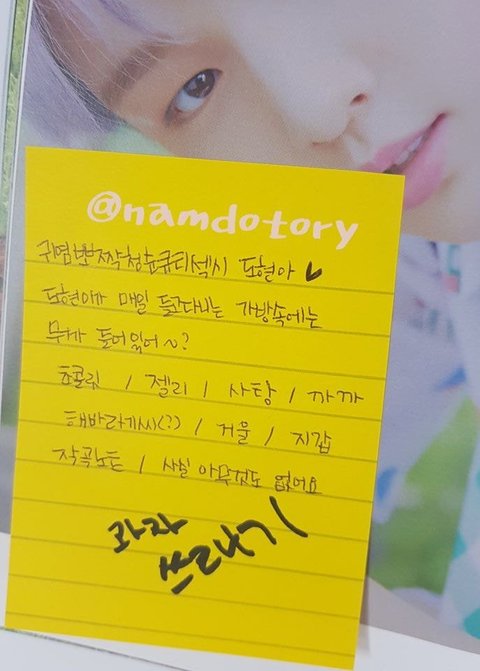 @namdotory
귀염뽀짝청순큐티섹시 도현아
도현이가 매일 들고다니는 가방속에는
뭐가 들어있어~?
초콜릿 / 젤리 / 사탕 / 까까
해바라기씨(?) / 거울 / 지갑
작곡노트 / 사실 아무것도 없어요
과자
쓰레기